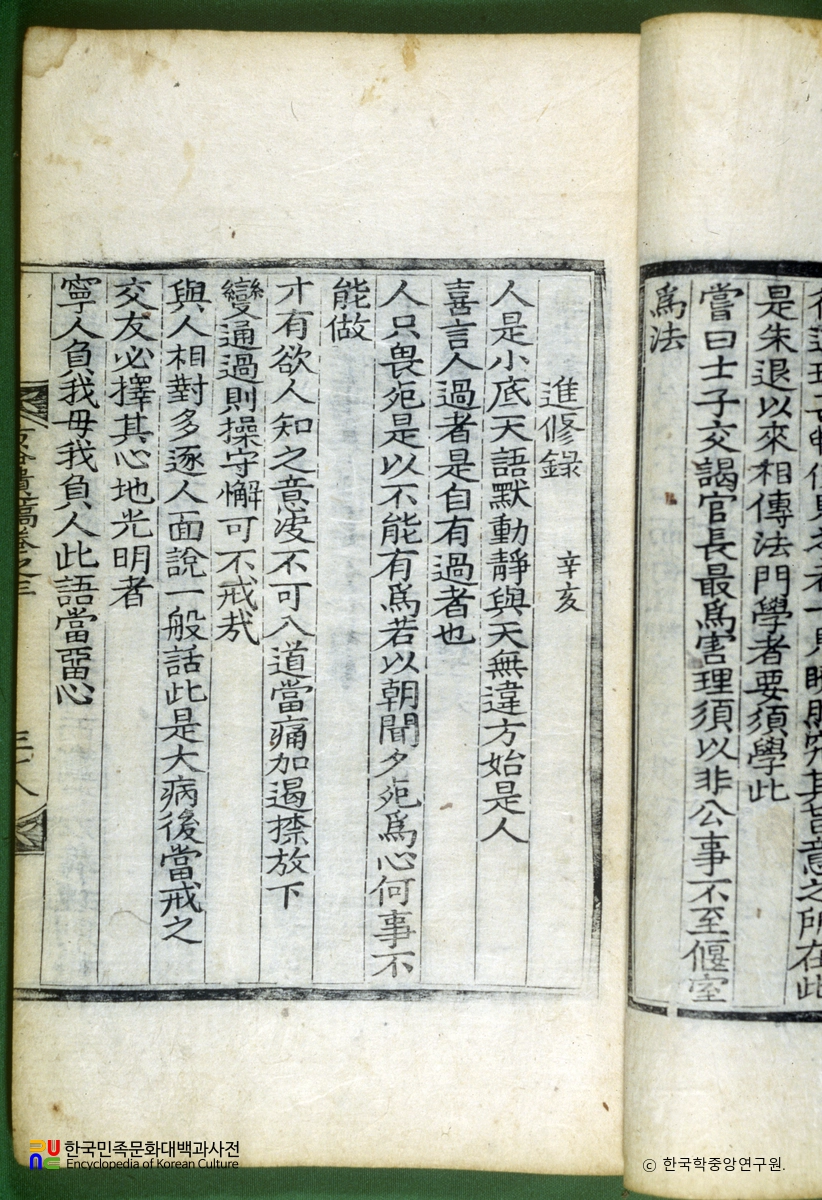 其旨意之所在此
是朱退以來相傳法門學者要須學此
嘗曰士子交謁官長最爲害理須以非公事不至偃室
爲法
進修錄 辛亥
人是小底天語默動靜與天無違方始是人
喜言人過者是自有過者也
人只畏死是以不能有爲若以朝聞夕死爲心何事不
能做
才有欲人知之意便不可入道當痛加遏捺放下
變通過則操守懈可不戒哉
與人相對多逐人面說一般話此是大病後當戒之
交友必擇其心地光明者
寧人負我毋我負人此語當畱心
遺稿卷之三
한국민족문화대백과사전
Encyclopedia of Korean Culture
© 한국학중앙연구원.